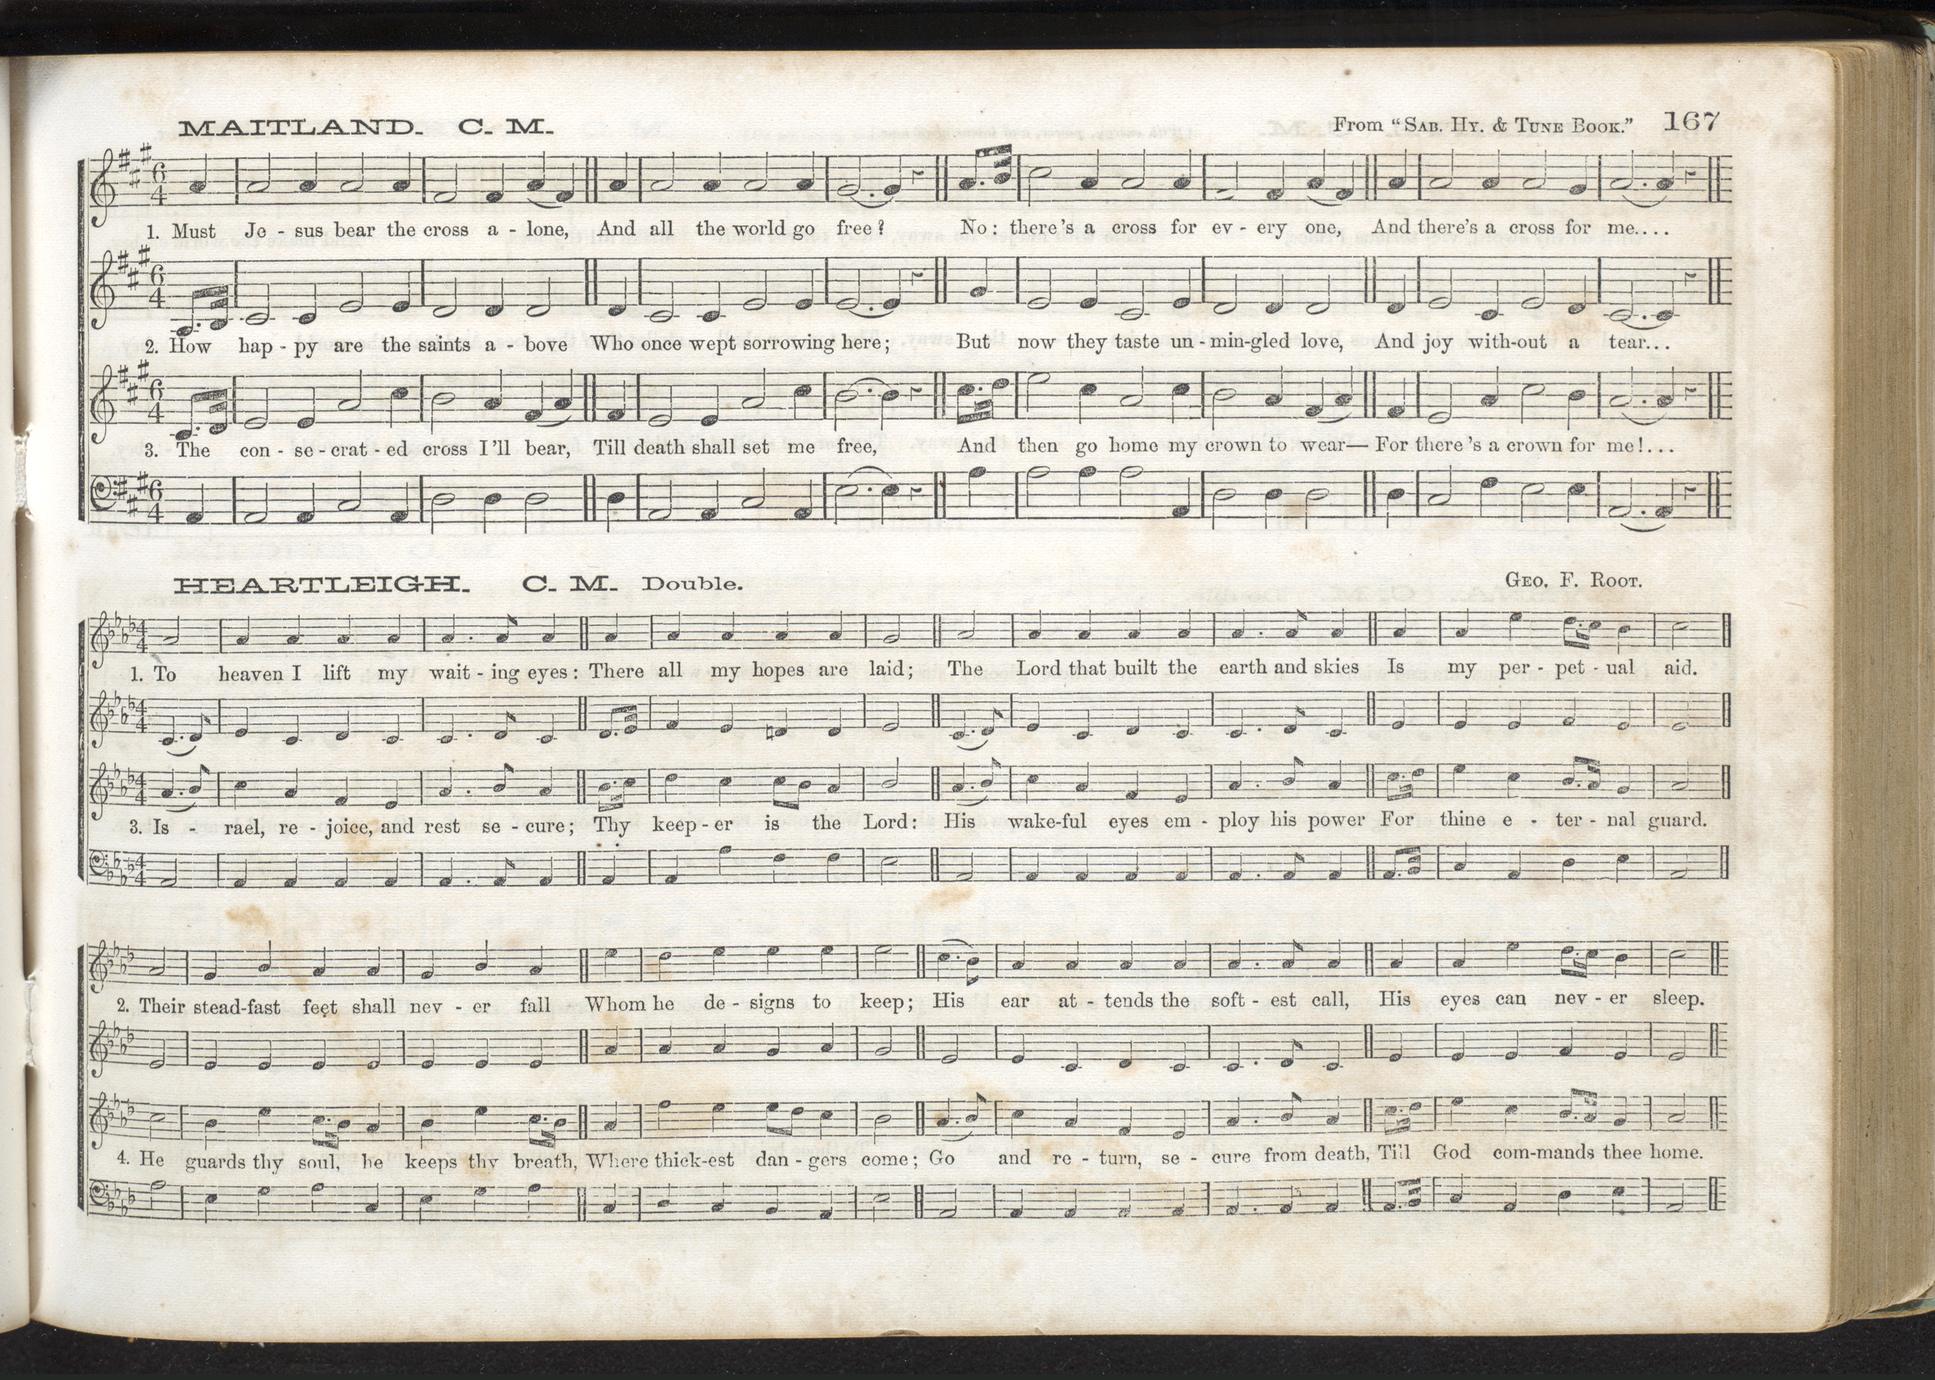 MAITLAND. C. M. From "Sab. Hy. & Tune Book." 167
1. Must Je - sus bear the cross a - lone, And all the world go free? No: there's a cross for ev - ery one, And there's a cross for me....
2. How hap - py are the saints a - bove Who once wept sorrowing here; But now they taste un - min-gled love, And joy with-out a tear...
3. The con - se - crat - ed cross I'll bear, Till death shall set me free, And then go home my crown to wear— For there's a crown for me!...
HEARTLEIGH. C. M. Double. Geo. F. Root.
1. To heaven I lift my wait - ing eyes: There all my hopes are laid; The Lord that built the earth and skies Is my per - pet - ual aid.
3. Is - rael, re - joice, and rest se - cure; Thy keep - er is the Lord: His wake-ful eyes em - ploy his power For thine e - ter - nal guard.
2. Their stead-fast feet shall nev - er fall Whom he de - signs to keep; His ear at - tends the soft - est call, His eyes can nev - er sleep.
4. He guards thy soul, he keeps thy breath, Where thick-est dan - gers come; Go and re - turn, se - cure from death, Till God com-mands thee home.